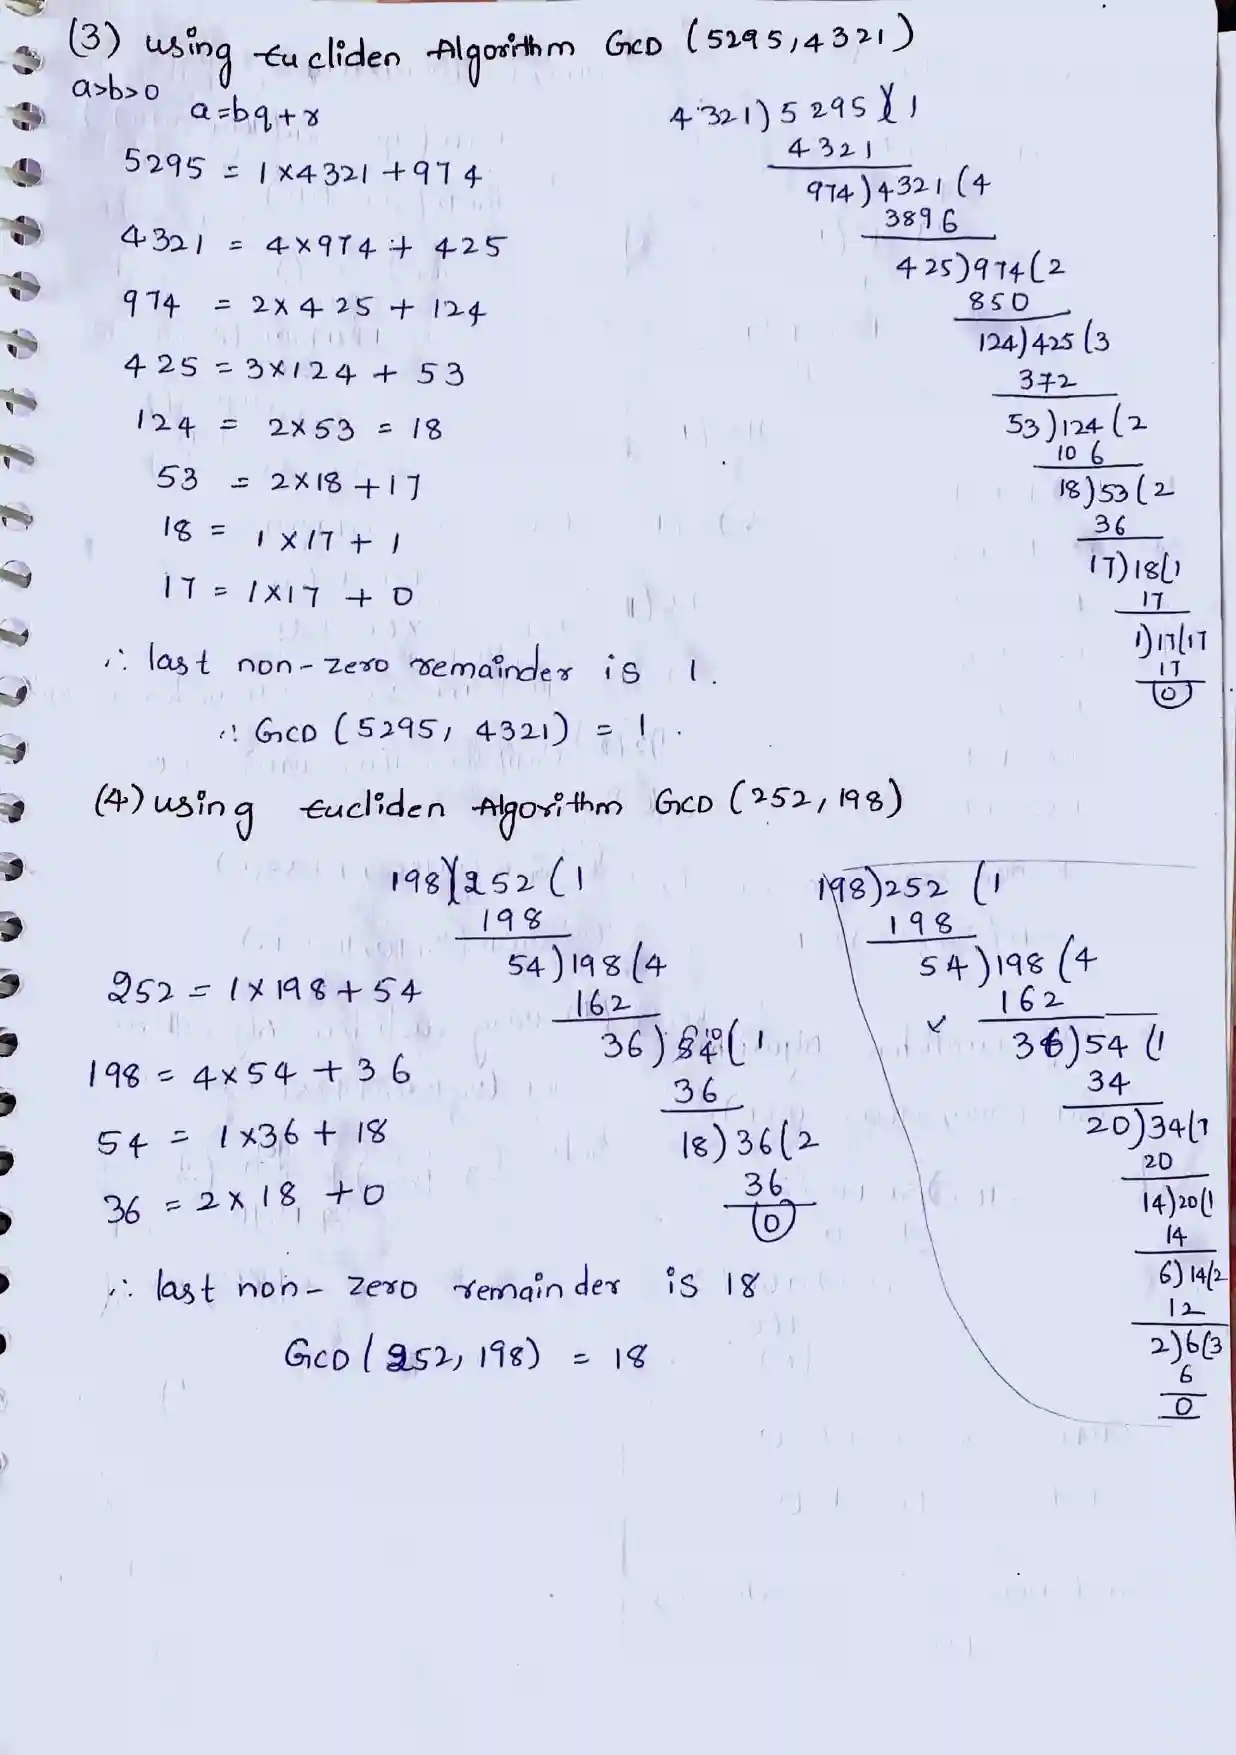 (3) using Eucliden Algorithm GCD (5295,4321)
a>b>0
a=bq+r
5295 = 1×4321+974
4321 = 4×974+ 425
974 = 2×425 + 124
425 = 3×124 + 53
124 = 2×53 = 18
53 = 2×18+17
18 = 1×17+1
17 = 1×17 + 0
∴ last non-zero remainder is 1.
∴ GCD (5295, 4321) = 1.
4321)5295(1
4321
974)4321(4
3896
425)974(2
850
124)425(3
372
53)124(2
106
18)53(2
36
17)18(1
17
1)17(17
17
0
(4) using Eucliden Algorithm GCD (252,198)
198)252(1
198
54)198(4
162
36)54(1
36
18)36(2
36
0
252 = 1×198+54
198 = 4×54+36
54 = 1×36+18
36 = 2×18+0
∴ last non-zero remainder is 18
GCD (252,198) = 18
198)252(1
198
54)198(4
162
36)54(1
34
20)34(1
20
14)20(1
14
6)14(2
12
2)6(3
6
0